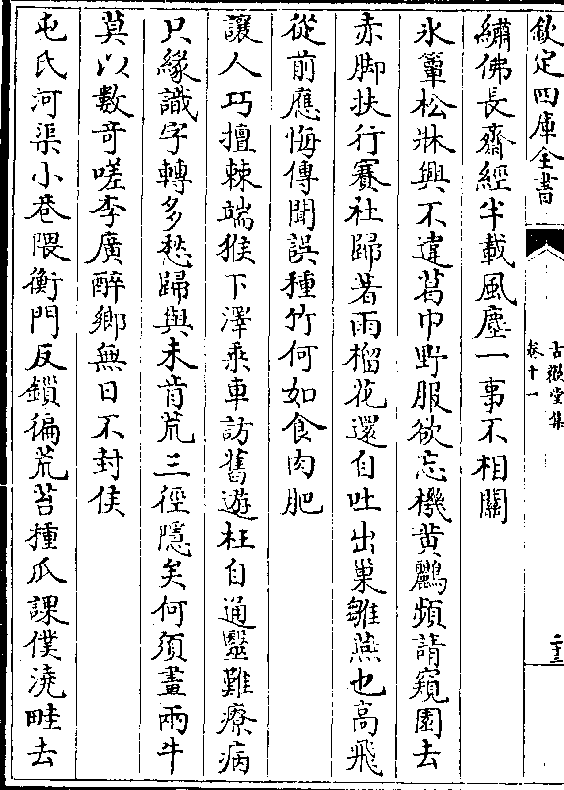 欽定四庫全書
古懽堂集
卷十一
二十三
繡佛長齋經半載風塵一事不相關
氷簟松牀興不違葛巾野服欲忘機黄鸝頻請窺園去
赤脚扶行賽社歸著雨榴花還自吐出巢雛燕也高飛
從前應悔傳聞誤種竹何如食肉肥
讓人巧擅棘端猴下澤乗車訪舊遊枉自通毉難療病
只緣識字轉多愁歸與未肯荒三徑隱矣何須畫兩牛
莫以數竒嗟李廣醉鄉無日不封侯
屯氏河渠小巷隈衡門反鎖徧荒苔種瓜課僕澆畦去